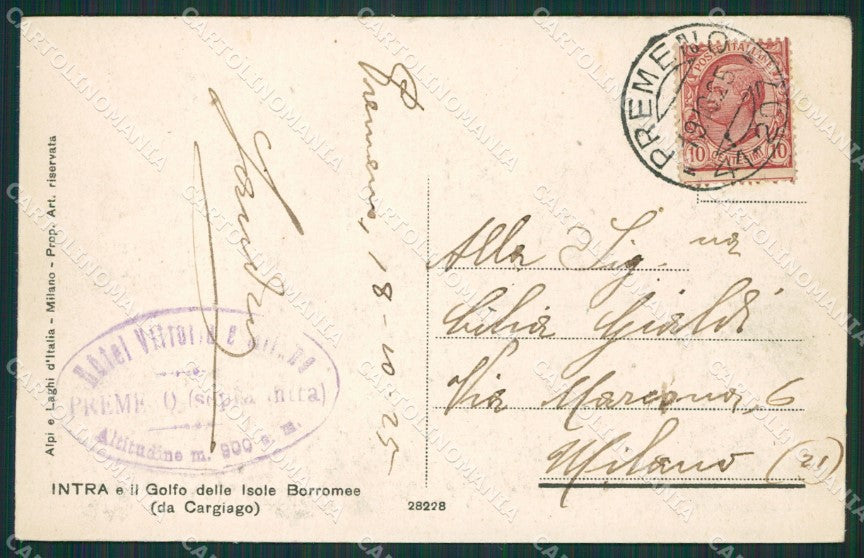 Alpi e Laghi d'Italia - Milano - Prop. Art. riservata
Premeno, 18-10-25
Sandro
Hôtel Vittoria e Milano
PREMENO (sopra Intra)
Altitudine m. 900 s. m.
INTRA e il Golfo delle Isole Borromee
(da Cargiago)
28228
PREMENO
19.10.25
POSTE ITALIANE
10 CENTESIMI 10
Alla Sig.na
Gialdi
Via Marcona, 6
Milano (21)
CARTOLINOMANIA